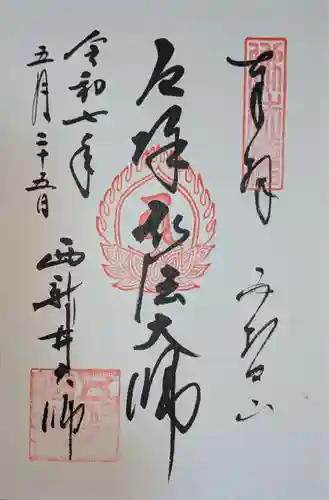 奉拝
五智山
厄除弘法大師
令和七年
五月二十五日
西新井大師